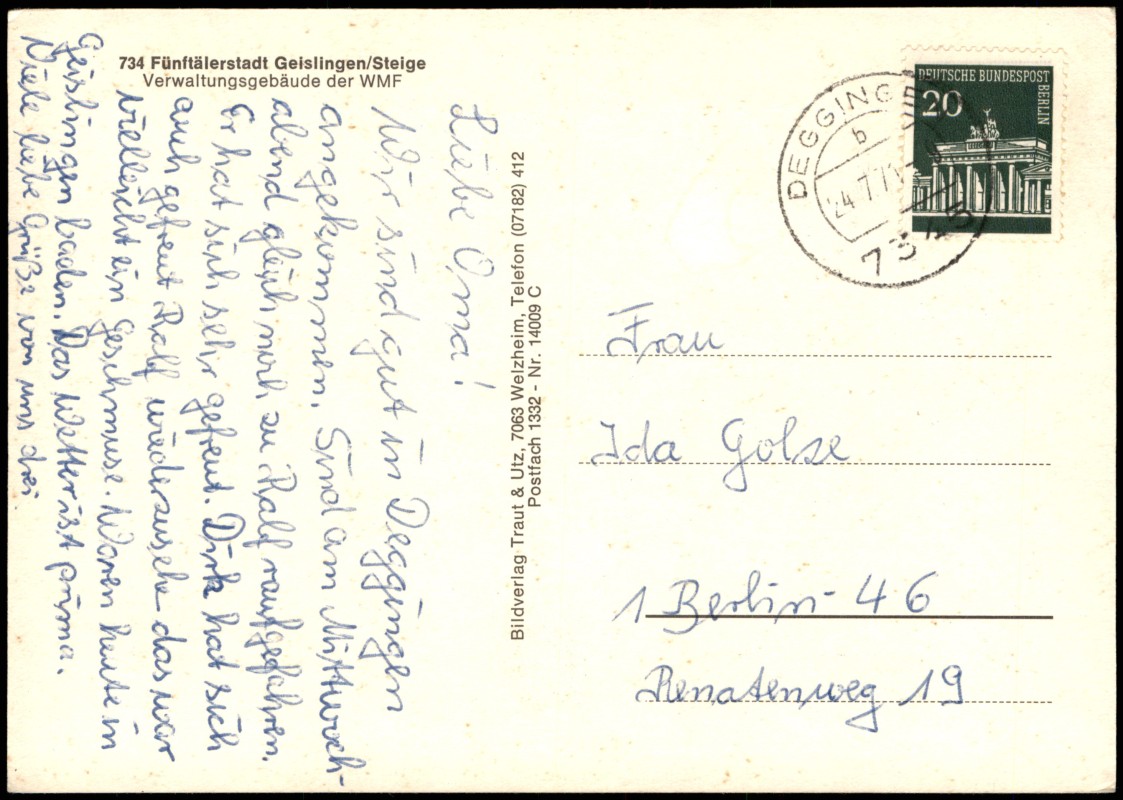 734 Fünftälerstadt Geislingen/Steige
Verwaltungsgebäude der WMF
Liebe Oma!
Wir sind gut in Deggingen
angekommen. Sind am Mittwoch-
abend gleich noch zu Ralf raufgefahren.
Er hat sich sehr gefreut. Dirk hat sich
auch gefreut Ralf wiederzusehe das war
vielleicht ein Geschmuse. Waren heute in
Geislingen baden. Das Wetter ist prima.
Viele liebe Grüße von uns drei
Bildverlag Traut & Utz, 7063 Welzheim, Telefon (07182) 412
Postfach 1332 - Nr. 14009 C
DEUTSCHE BUNDESPOST
BERLIN
20
DEGGINGEN
b
24.7.71
7345
Frau
Ida Golse
1 Berlin-46
Renatenweg 19